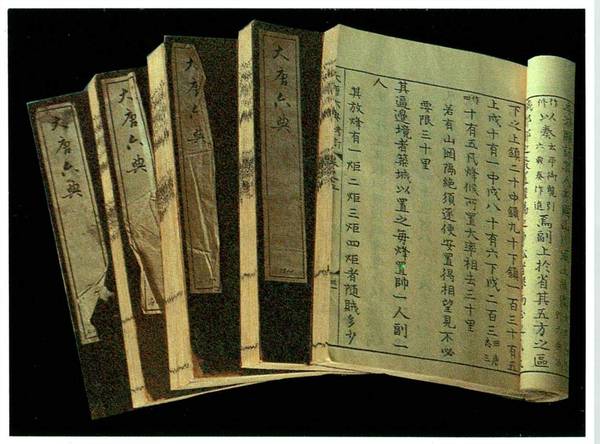 大唐六典
大唐六典
大唐六典
大唐六典
焉副上於省其五方之區
下之上鎮二十中鎮九十下鎮一百三十有五
上戍十有一中戍八十有六下戍二百三
十有五凡烽候所置大率相去三十里
若有山岡隔絕須逐便安置得相望見不必
要限三十里
其逼邊境者築城以置之每烽置帥一人副一
人
其放烽有一炬二炬三炬四炬者隨賊多少